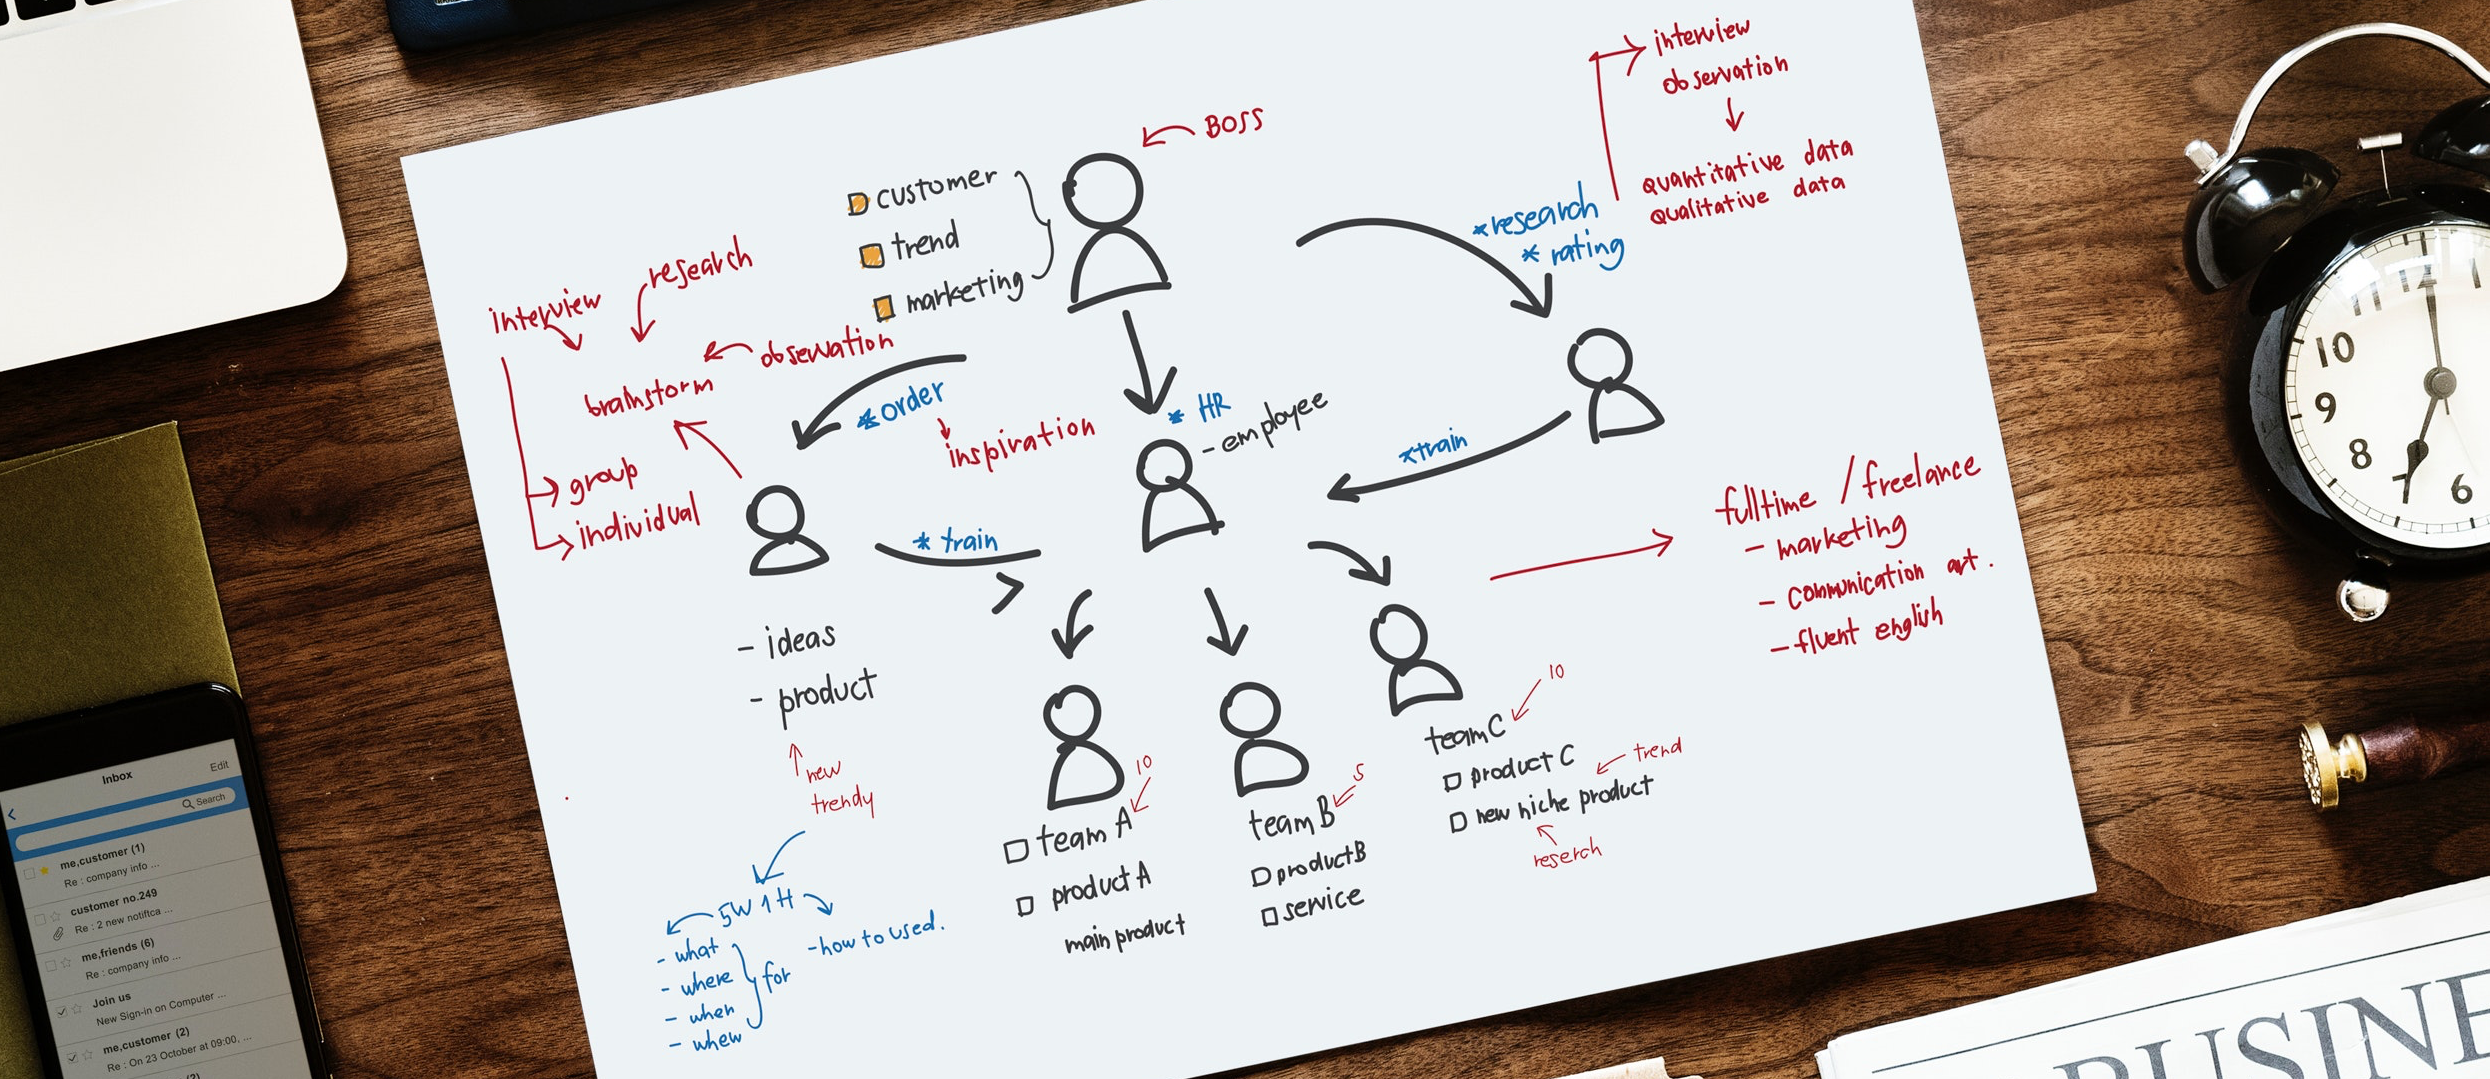 BOSS
customer
trend
marketing
interview
observation
quantitative data
qualitative data
*research
* rating
research
interview
observation
brainstorm
group
individual
*order
inspiration
* HR
- employee
*train
* train
- ideas
- product
new
trendy
5W 1H
- what
- where
- when
- whew
for
-how to used.
10
team A
product A
main product
5
team B
product B
service
10
team C
product C
trend
new niche product
reserch
fulltime / freelance
- marketing
- communication art.
- fluent english
Inbox
Edit
Search
me,customer (1)
Re : company info ...
customer no.249
Re : 2 new notiftca ...
me,friends (6)
Re : company info ...
Join us
New Sign-in on Computer ...
me,customer (2)
Re : On 23 October at 09:00, ...
(2)
11
12
10
9
8
7
6
BUSINE